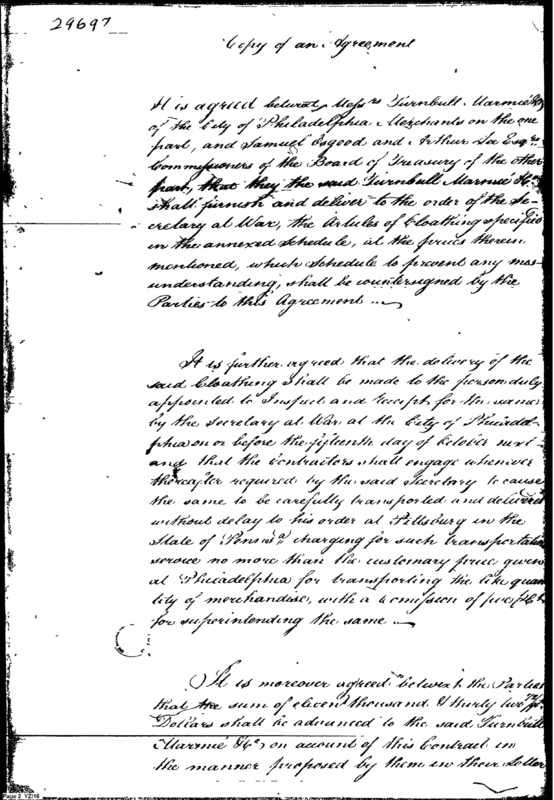 29697
Copy of an Agreement
It is agreed between Messrs Turnbull Marmie & Co
of the City of Philadelphia Merchants on the one
part, and Samuel Osgood and Arthur Lee Esqrs
Commissioners of the Board of Treasury of the other
part, that they the said Turnbull Marmie & Co
shall furnish and deliver to the order of the Se-
cretary at War, the Articles of Cloathing specified
in the annexed Schedule, at the prices therein
mentioned, which Schedule to prevent any mis-
understanding, shall be countersigned by the
Parties to this Agreement
It is further agreed that the delivery of the
said Cloathing shall be made to the person duly
appointed to Inspect and receipt for the same
by the Secretary at War at the City of Philadel-
phia on or before the fifteenth day of October next
and that the Contractors shall engage whenever
thereafter required by the said Secretary to cause
the same to be carefully transported and delivered
without delay to his order at Pittsburg in the
State of Pennsa charging for such transportation
service no more than the customary price given
at Philadelphia for transporting the like quan
tity of merchandise, with a Comission of five Ct
for superintending the same
It is moreover agreed betwixt the Parties
that the sum of eleven thousand & thirty two
Dollars shall be advanced to the said Turnbull
Marmie & Co on account of this Contract in
the manner proposed by them in their Letter
Page 2 YZI16